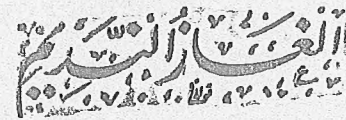 الْغَازُ النَّدِيمِ